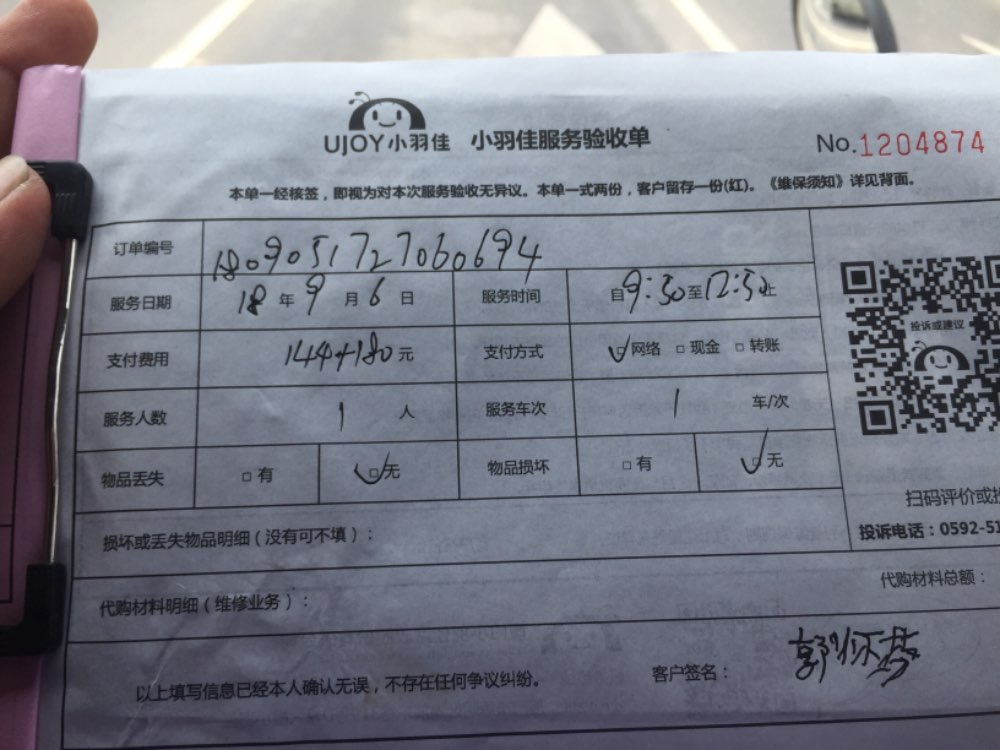 UJOY小羽佳 小羽佳服务验收单 No.1204874
本单一经核签，即视为对本次服务验收无异议。本单一式两份，客户留存一份(红)。《维保须知》详见背面。
订单编号 1809051727060694
服务日期 18年9月6日 服务时间 自9:50至12:50止
支付费用 144+180元 支付方式 网络 现金 转账
投诉或建议
服务人数 1人 服务车次 1车/次
物品丢失 有 无 物品损坏 有 无
扫码评价或投
损坏或丢失物品明细（没有可不填）： 投诉电话：0592-51
代购材料明细（维修业务）： 代购材料总额：
以上填写信息已经本人确认无误，不存在任何争议纠纷。 客户签名：